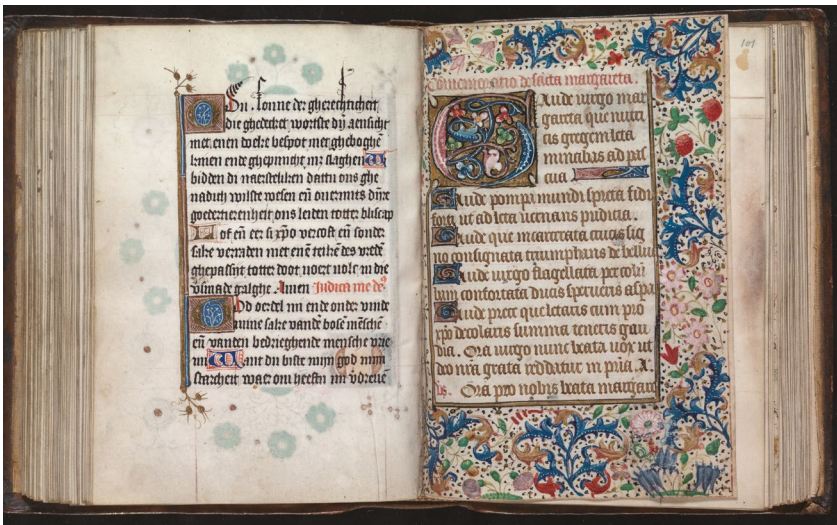 Du . sonne der gherechticheit
die ghedecket worste dyn aensicht
met enen doeck bespot met gheboghē
knien ende ghepinicht mz slaghen W
bidden di naerstelken dattu ons ghe
nadich wilste wesen eñ ouermits dyre
goedertierenheit ons leiden totter bliscap
Lof eñ eer si xpo vercoft eñ sonder
sake verraden met enē teikē des vredē
ghepassyt totter doot noert uole in die
galghe . Amen Iudica me de⁹
God ordel mi ende onder vinde
mine sake vande bosē mēsche
eñ vanden bedrieghende mensche vrie
mi Want du biste mijn god mijn
starcheit waer om heefstu mi vdreuē
101
Comemoratio de sācta margareta .
Gaude uirgo mar
gareta que nutri
cis gregem leta
minabas ad pas
cua
Gaude pompa mundi spreta fidi
forti ut ad leta uenians pudicia .
Gaude que incarcerata crucis sig
no consignata triumphans de bellua
Gaude uirgo flagellata per colū
bam confortata ducis spretis aspa
Gaude prece que letaris cum pro
xpo decolaris summa teneris gau
dia . Ora uirgo nunc beata uox ut
deo nrā grata reddatur in pria . ℣
Ora pro nobis beata margare